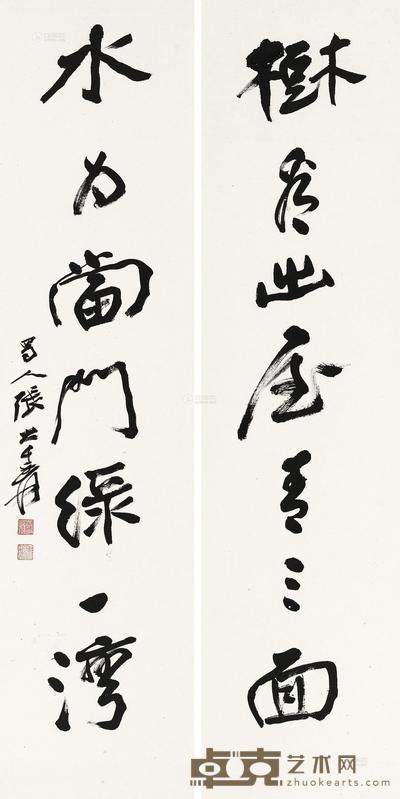 樹為出屋青三面
水為當門綠一灣
蜀人張大千爰
卓克艺术网
www.zhuokearts.com